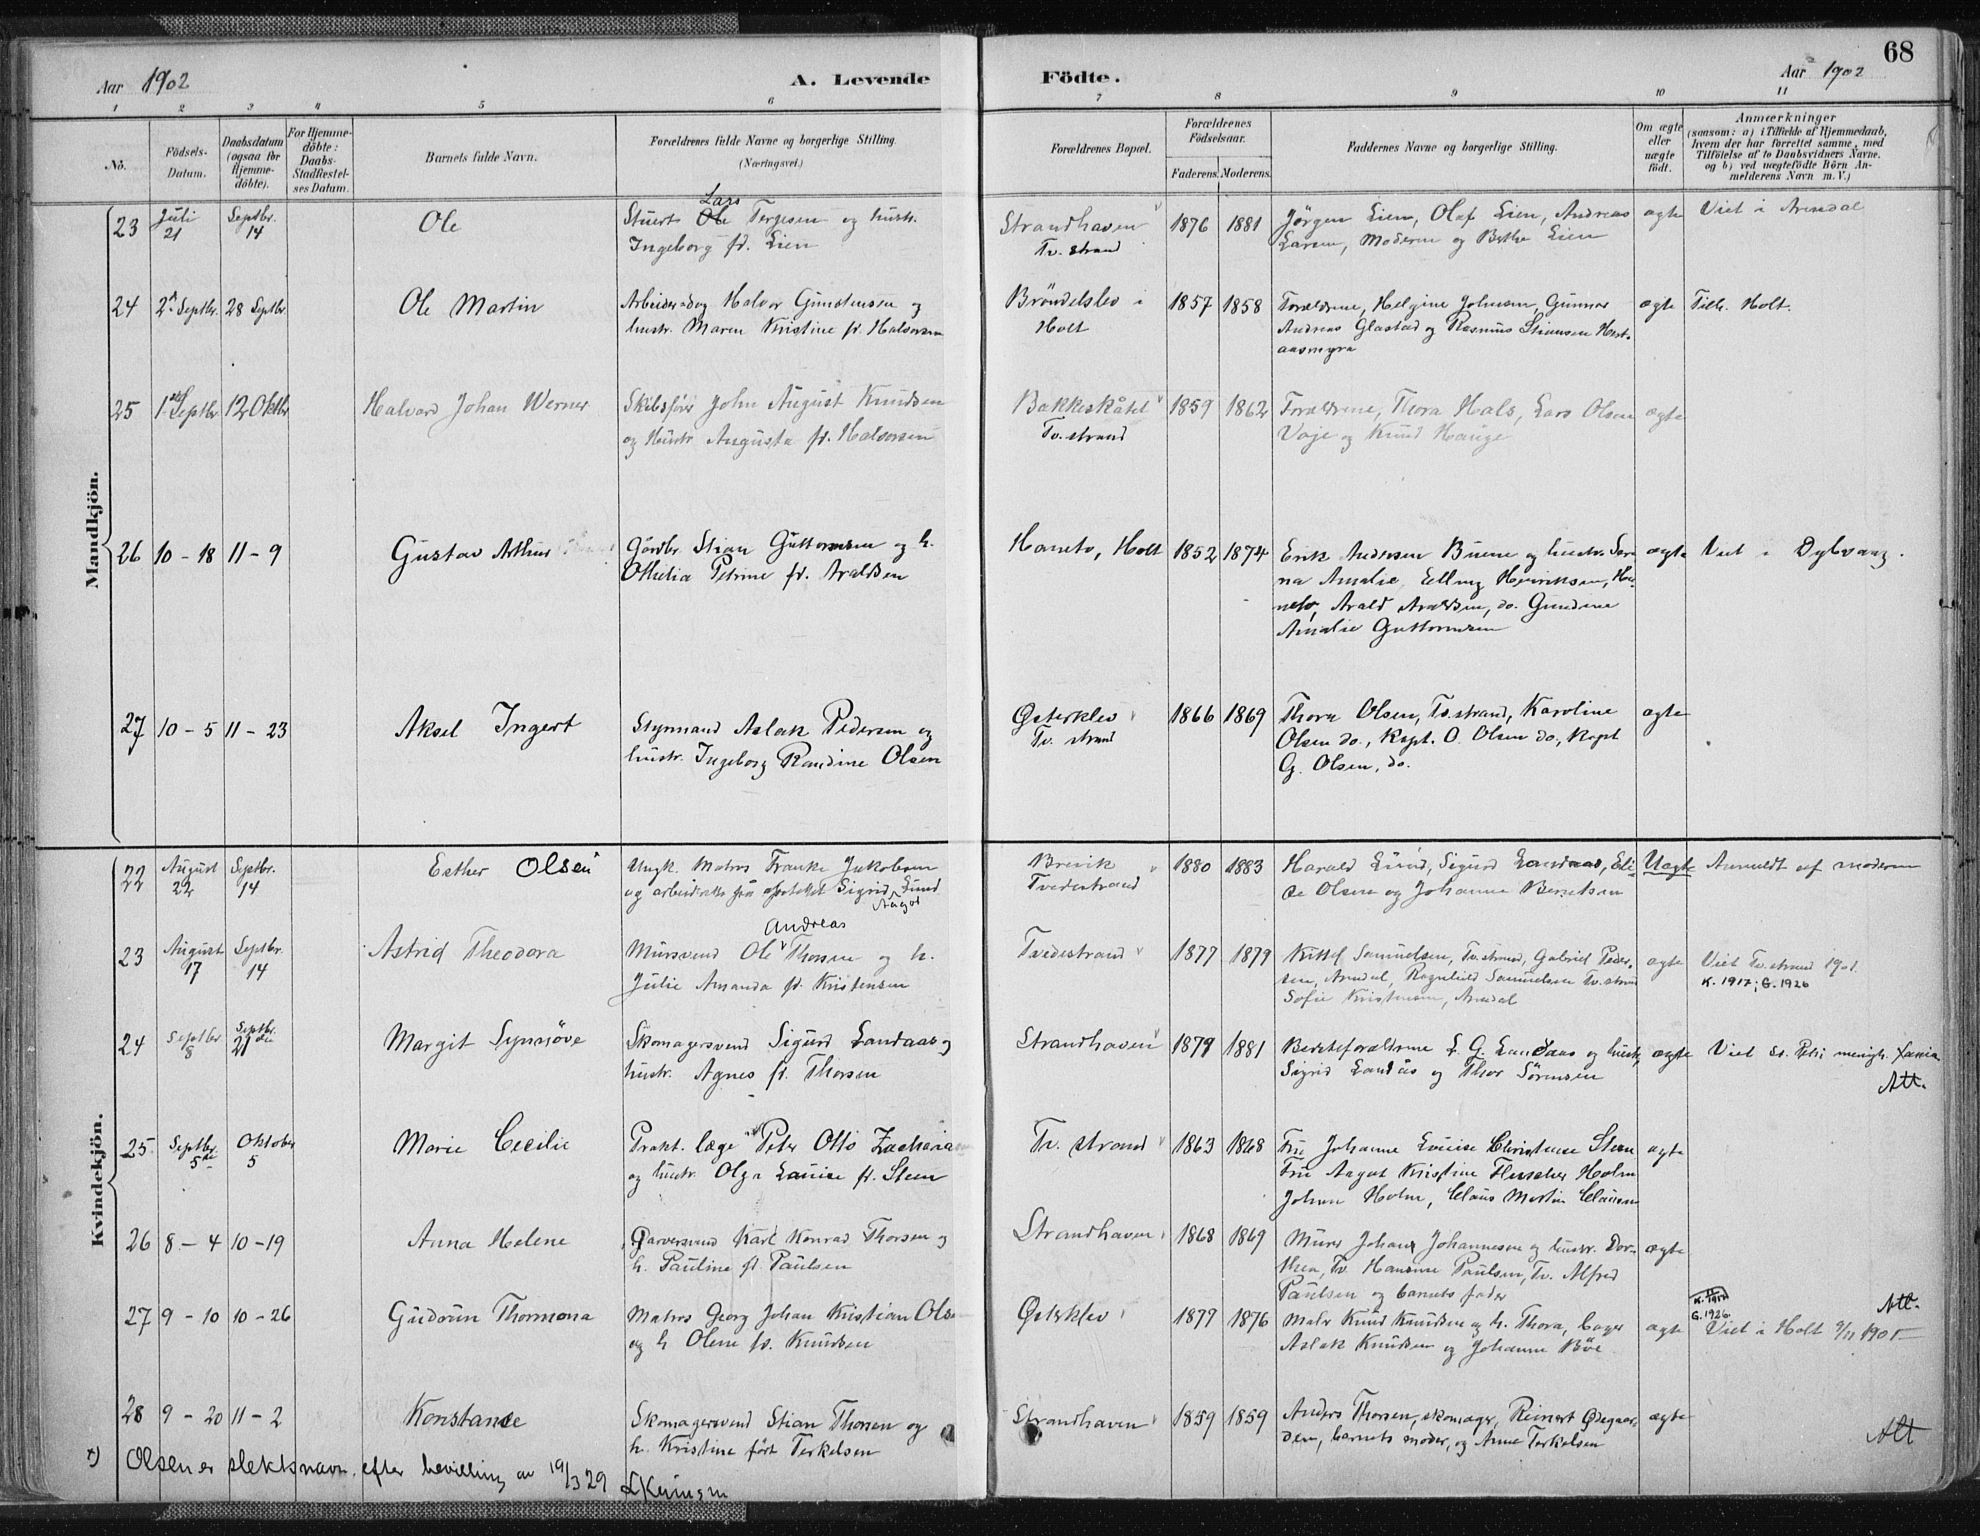 68
Aar 1902
A. Levende Födte.
Aar 1902
1 2 3 4 5 6 7 8 9 10 11
No.
Födsels-Datum.
Daabsdatum (ogsaa for Hjemmedöbte).
For Hjemmedöbte: Daabs-Stadfestelses Datum.
Barnets fulde Navn.
Forældrenes fulde Navne og borgerlige Stilling.
(Næringsvei.)
Forældrenes Bopæl.
Forældrenes Födselsaar.
Faderens. Moderens.
Faddernes Navne og borgerlige Stilling.
Om ægte eller uægte födt.
Anmærkninger
(saasom: a) i Tilfælde af Hjemmedaab,
hvem der har forrettet samme, med
Tilföielse af to Daabsvidners Navne,
og b) ved uægtefödte Börn An-
melderens Navn m. V.)
Mandkjön.
23 Juli 21 Septbr. 14 Ole
Lars
Stuerts Ole Tergesen og hustr.
Ingeborg fd. Lien
Strandhaven
Tv. strand
1876 1881
Jörgen Lien, Olaf Lien, Andreas
Larsen, Moderen og Berthe Lien
ægte
Viet i Arendal
24 2 Septbr. 28 Septbr. Ole Martin
Arbeidsmand Halvor Gunstensen og
hustr. Maren Kristine fd. Halvorsen
Bröndelslev i
Holt
1857 1858
Forældrene, Helgine Johnsen, Gunnar
Andreas Glastad og Rasmus Stiansen Hest-
aasmyra
ægte
Tilh. Holt.
25 1 Septbr 12 Oktbr Halvord Johan Werner
Skibsförer John August Knudsen
og Hustr. Augusta fd. Halvorsen
Bakkeskåtet
Tv. strand
1859 1862
Forældrene, Thora Hals, Lars Olsen
Voje og Knud Hauge
ægte
26 10 - 18 11 - 9 Gustav Arthur
Gårdbr. Stian Guttormsen og h.
Othelia Petrine fd. Araldsen
Haneto, Holt
1852 1874
Erik Andersen Buene og hustr. Sere-
na Amalie, Elling Henriksen, Ha-
neto, Arald Araldsen, do. Gundine
Amalie Guttormsen
ægte
Viet i Dybvaag.
27 10 - 5 11 - 23 Aksel Ingert
Styrmand Aslak Pedersen og
hustr. Ingeborg Randine Olsen
Østerklev
Tv. strand
1866 1869
Thora Olsen, Tv.strand, Karoline
Olsen do., Kapt. O. Olsen do., Kapt
G. Olsen, do.
ægte
Kvindekjön.
22 August 22 Septbr. 14 Esther Olsen
Ungk. Matros Franke Jakobsen
og arbeiderske på apoteket Sigrid Lund
Aagot
Brevik
Tvedestrand
1880 1883
Harald Lund, Sigurd Landaas, Eli-
se Olsen og Johanne Berntsen
Uægte
Anmeldt af moderen
23 August 17 Septbr. 14 Astrid Theodora
Andreas
Mursvend Ole Thorsen og h.
Julie Amanda fd. Kristensen
Tvedestrand
1877 1879
Kittel Samuelsen, Tv.strand, Gabriel Peder-
sen, Arendal, Ragnhild Samuelsen Tv.strand
Sofie Kristensen, Arendal
ægte
Viet Tv.strand 1901.
K. 1917; G. 1926
24 Septbr. 8 Septbr. 21 Margit Synnöve
Skomagersvend Sigurd Landaas og
hustr. Agnes fd. Thorsen
Strandhaven
1879 1881
Bedsteforældrene L. G. Landaas og hustr,
Sigrid Landås og Thor Sörensen
ægte
Viet St. Petri menigh. Xania
Att.
25 Septbr. 5 Oktober 5 Marie Cecilie
Prakt. læge Peter Otto Zacharia
og hustr. Olga Louise fd. Steen
Tv. strand
1863 1868
Fru Johanne Louise Christense Steen
Fru Aagot Kristine Holm
Johan Holm, Claus Martin Clausen
ægte
26 8 - 4 10 - 19 Anna Helene
Garversvend Karl Konrad Thorsen og
h. Pauline fd. Paulsen
Strandhaven
1868 1869
Murer Johans Johannesen og hustr. Dor-
thea, Tv. Hansine Paulsen, Tv. Alfred
Paulsen og barnets fader
ægte
27 9 - 10 10 - 26 Gudrun Thormona
Matros Georg Johan Kristian Olse
og h Olene fd. Knudsen
Østerklev
1877 1876
Matr Knud Knudsen og h. Thora, Bager
Aslak Knudsen og Johanne Böe
ægte
G. 1926.
Att.
Viet i Holt 9/11 1901
28 9 - 20 11 - 2 Konstance
Skomagersvend Stian Thorsen og
h. Kristine född Terkelsen
Strandhaven
1859 1859
Anders Thorsen, skomager, Reinert Ødegaar-
den, barnets moder, og Anne Terkelsen
ægte
Att
*) Olsen er slektsnavn efter bevilling av 19/3 29